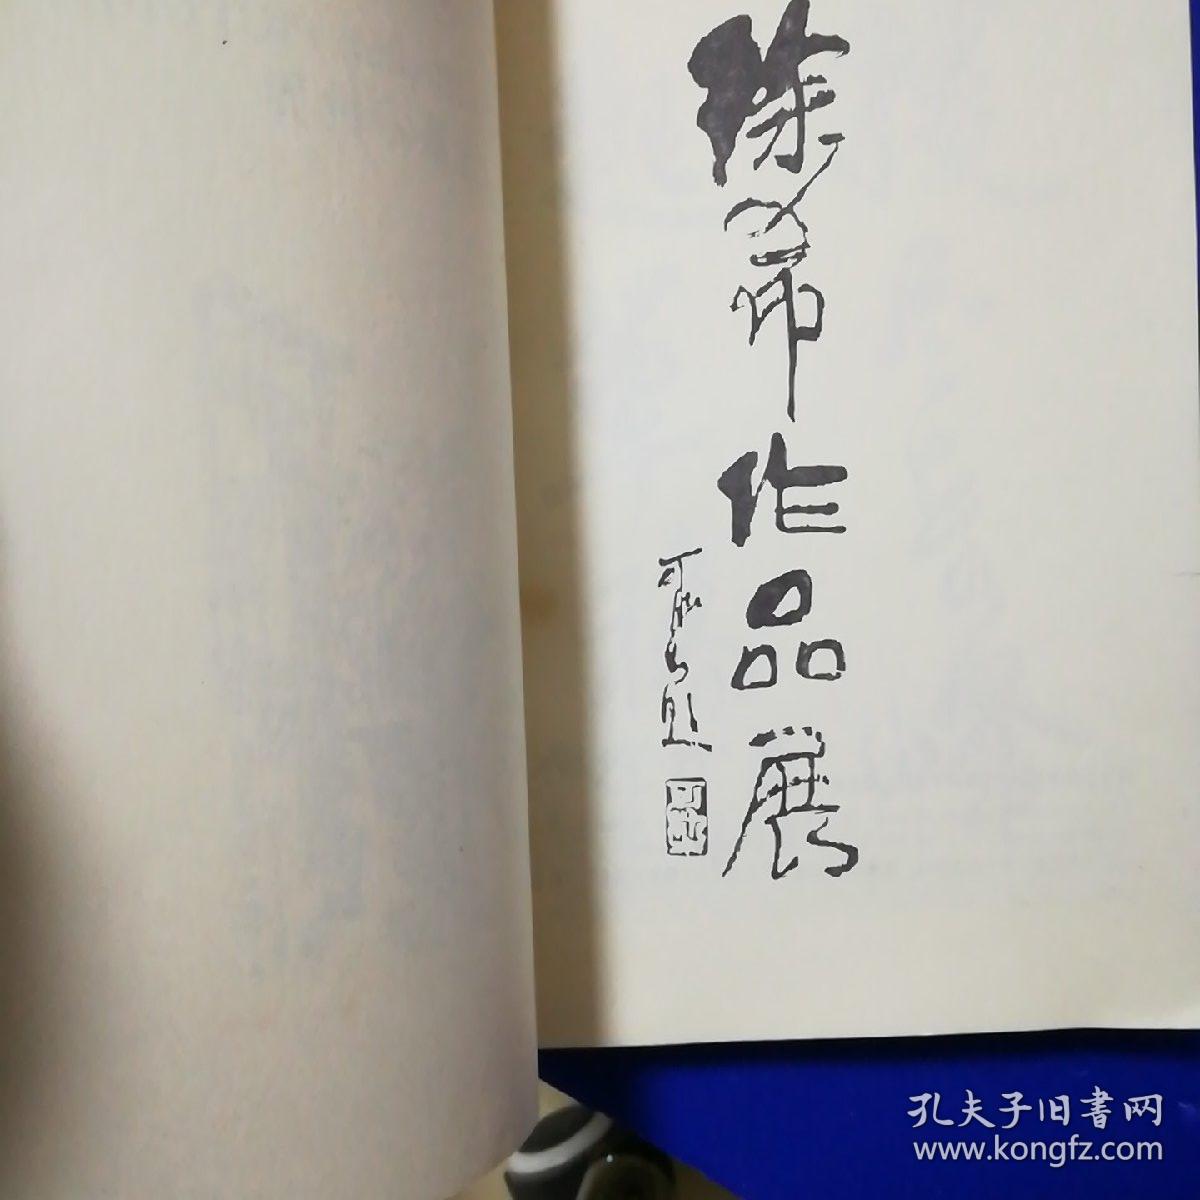 徐希作品展
可染题
孔夫子旧書网
www.kongfz.com